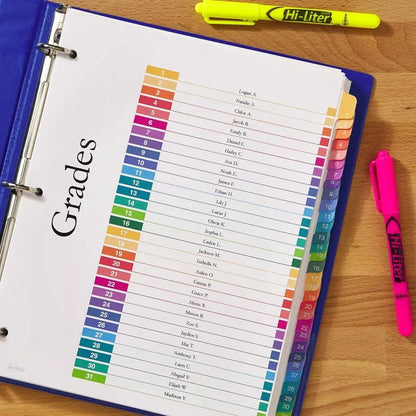 Hi-Liter
Hi-Liter
Grades
1 Logan A.
2 Natalie A.
3 Chloe A.
4 Jacob B.
5 Emily B.
6 Daniel C.
7 Hailey C.
8 Ava D.
9 Noah E.
10 James F.
11 Ethan H.
12 Lily J.
13 Lucas J.
14 Olivia K.
15 Sophia L.
16 Caden L.
17 Jackson M.
18 Isabella N.
19 Aiden O.
20 Emma P.
21 Grace P.
22 Alexis R.
23 Mason R.
24 Zoe S.
25 Jayden S.
26 Mia T.
27 Anthony T.
28 Liam U.
29 Abigail V.
30 Elijah W.
31 Madison Y.